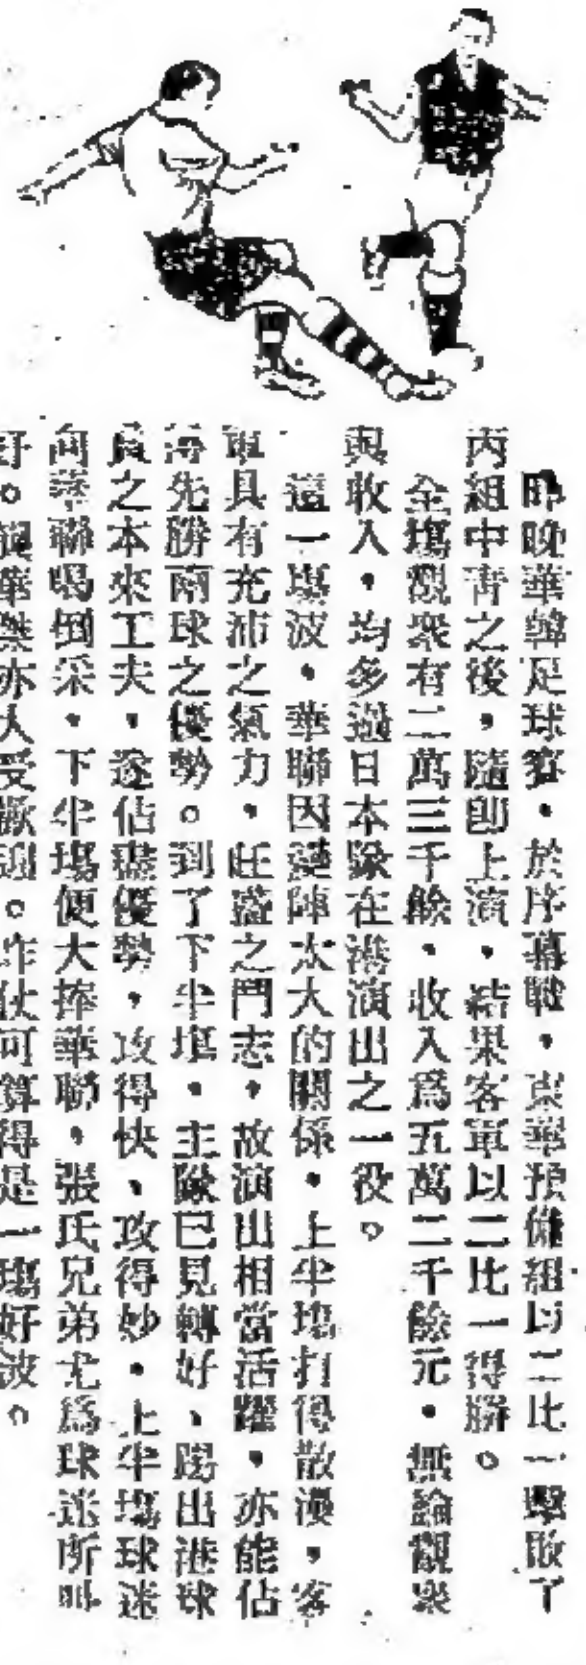 昨晚華韓足球賽，於序幕戰，東華預備組以二比一擊敗了
丙組中青之後，隨即上演，結果客軍以二比一得勝。
全塲觀衆有二萬三千餘，收入爲五萬二千餘元，無論觀衆
與收入，均多過日本隊在港演出之一役。
這一塲波，華聯因變陣太大的關係，上半塲打得散漫，客
軍具有充沛之氣力，旺盛之鬥志，故演出相當活躍，亦能佔
得先勝兩球之優勢。到了下半塲，主隊已見轉好、踢出港球
員之本來工夫，遂佔盡優勢，攻得快、攻得妙，上半塲球迷
向華聯喝倒采，下半塲便大捧華聯，張氏兄弟尤爲球迷所叫
好。劉華傑亦大受歡迎。昨仗可算得是一塲好波。